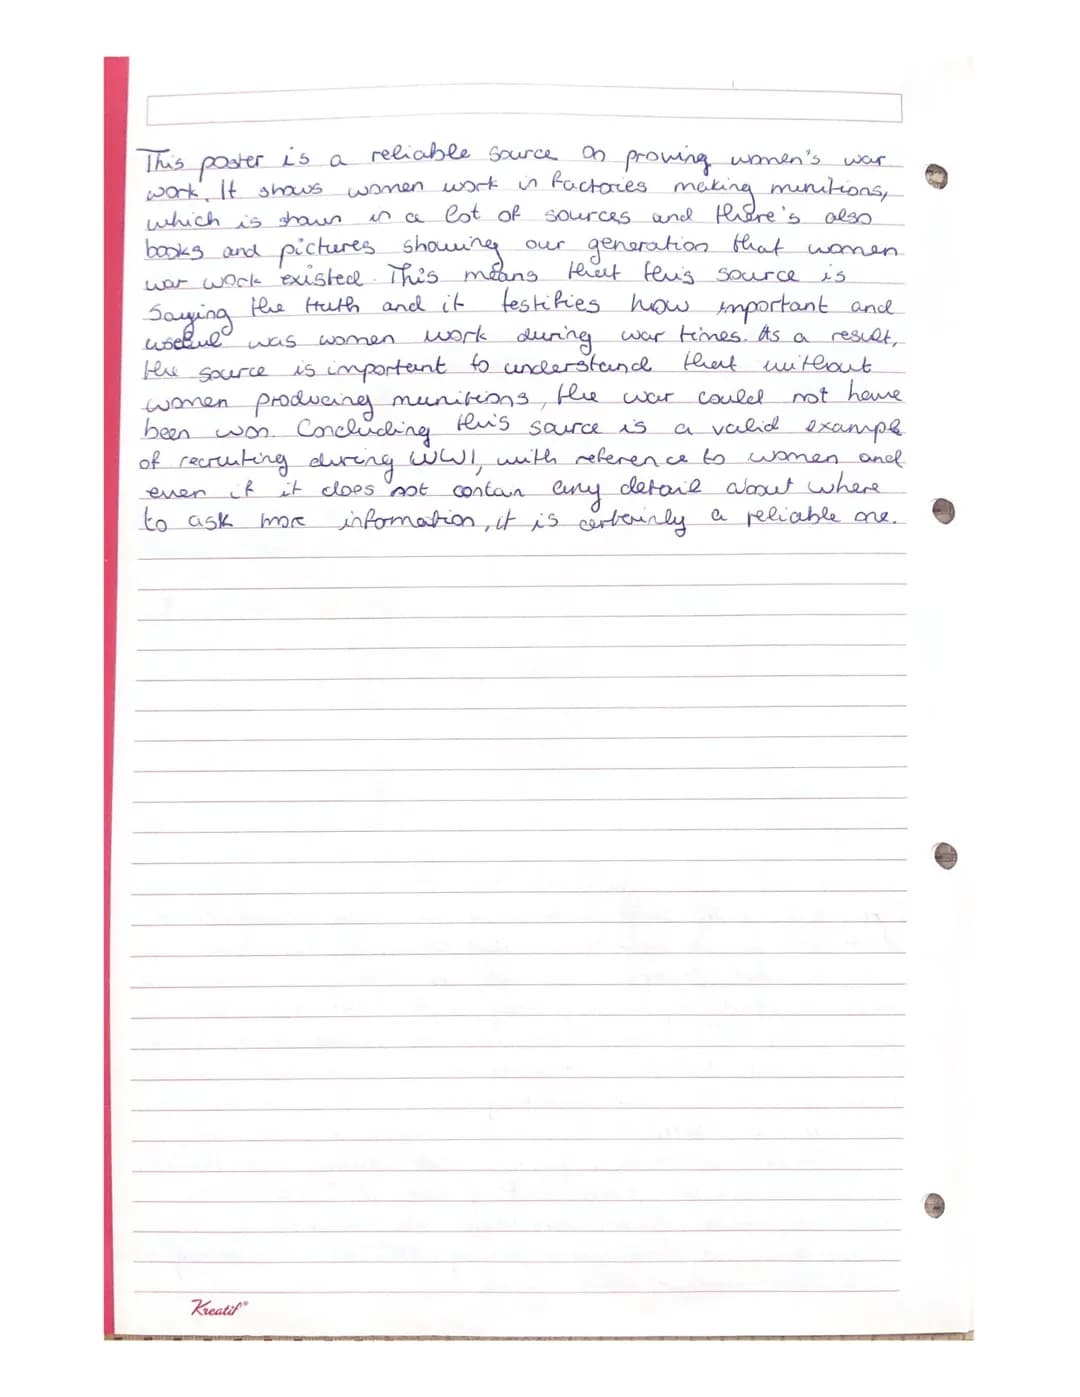 This poster is a reliable source on proving women's war
work. It shows women work in factories making munitions,
which is shown in a lot of sources and there's also
books and pictures showing our generation that women
war work existed. This means that this source is
saying the truth and it testifies how important and
useful was women work during war times. As a result,
the source is important to understand that without
women producing munitions, the war could not have
been won. Concluding this source is a valid example
of recruiting during WW1, with reference to women and
even if it does not contain any detail about where
to ask more information, it is certainly a reliable one.
Kreatif®